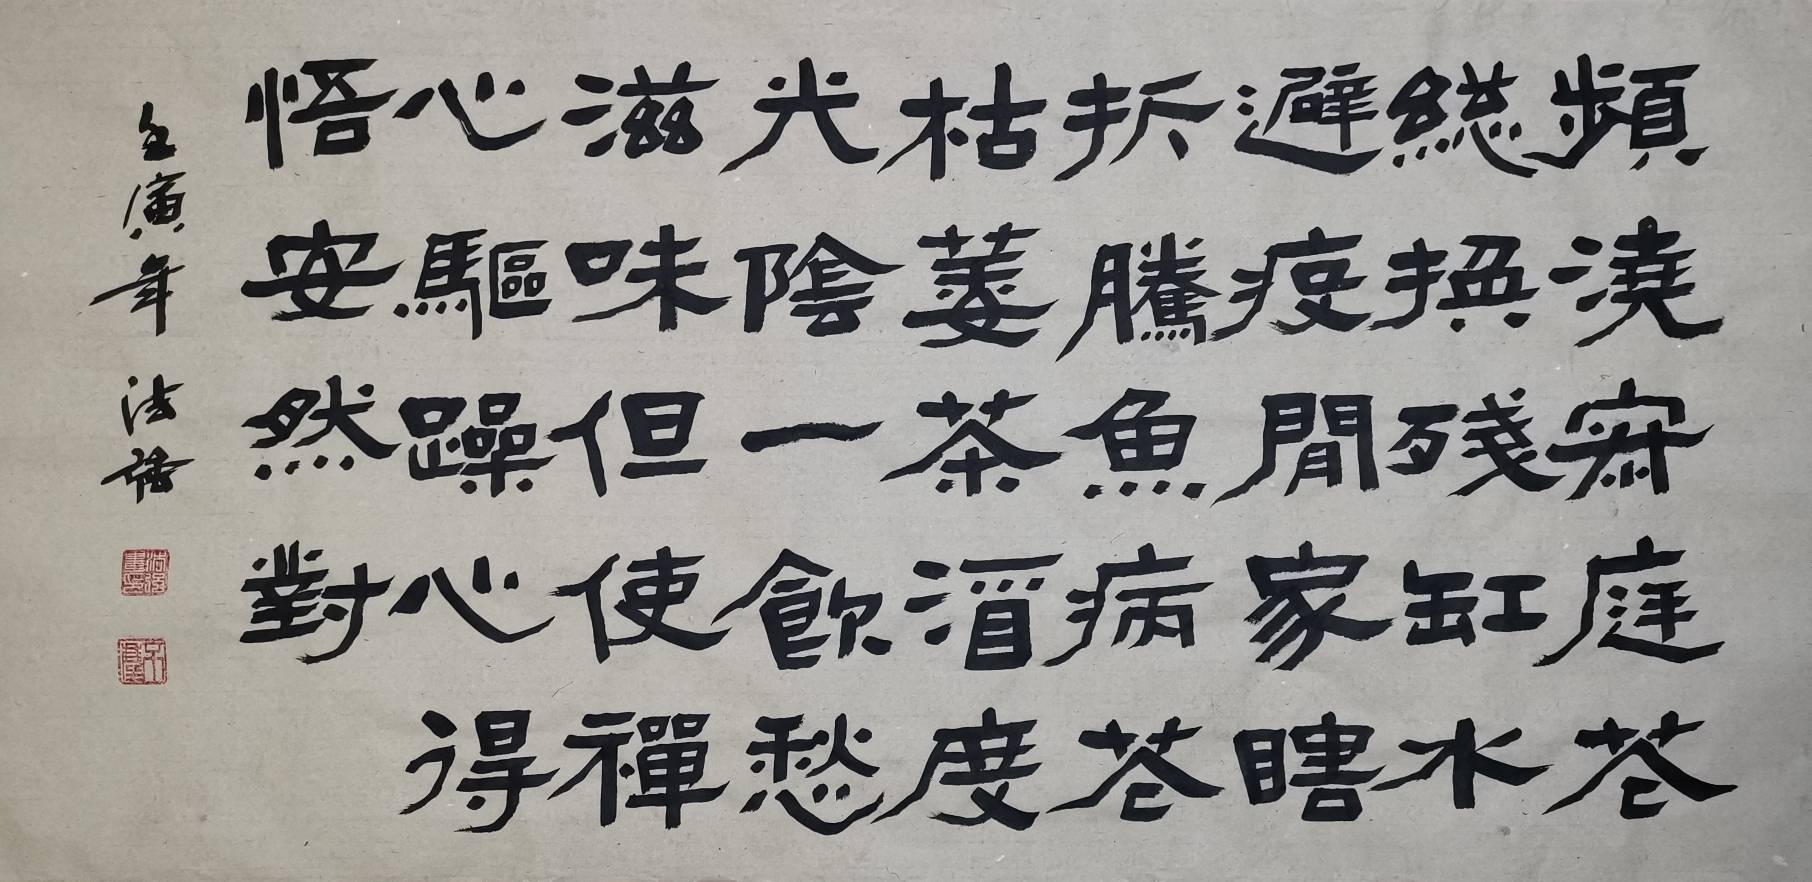 頻澆窮庭花
總換殘缸水
避疫閒家瞎
折騰魚病花
枯萎茶酒度
光陰一飲愁
滋味但使禪
心驅躁心得
悟安然對
壬寅年 法強